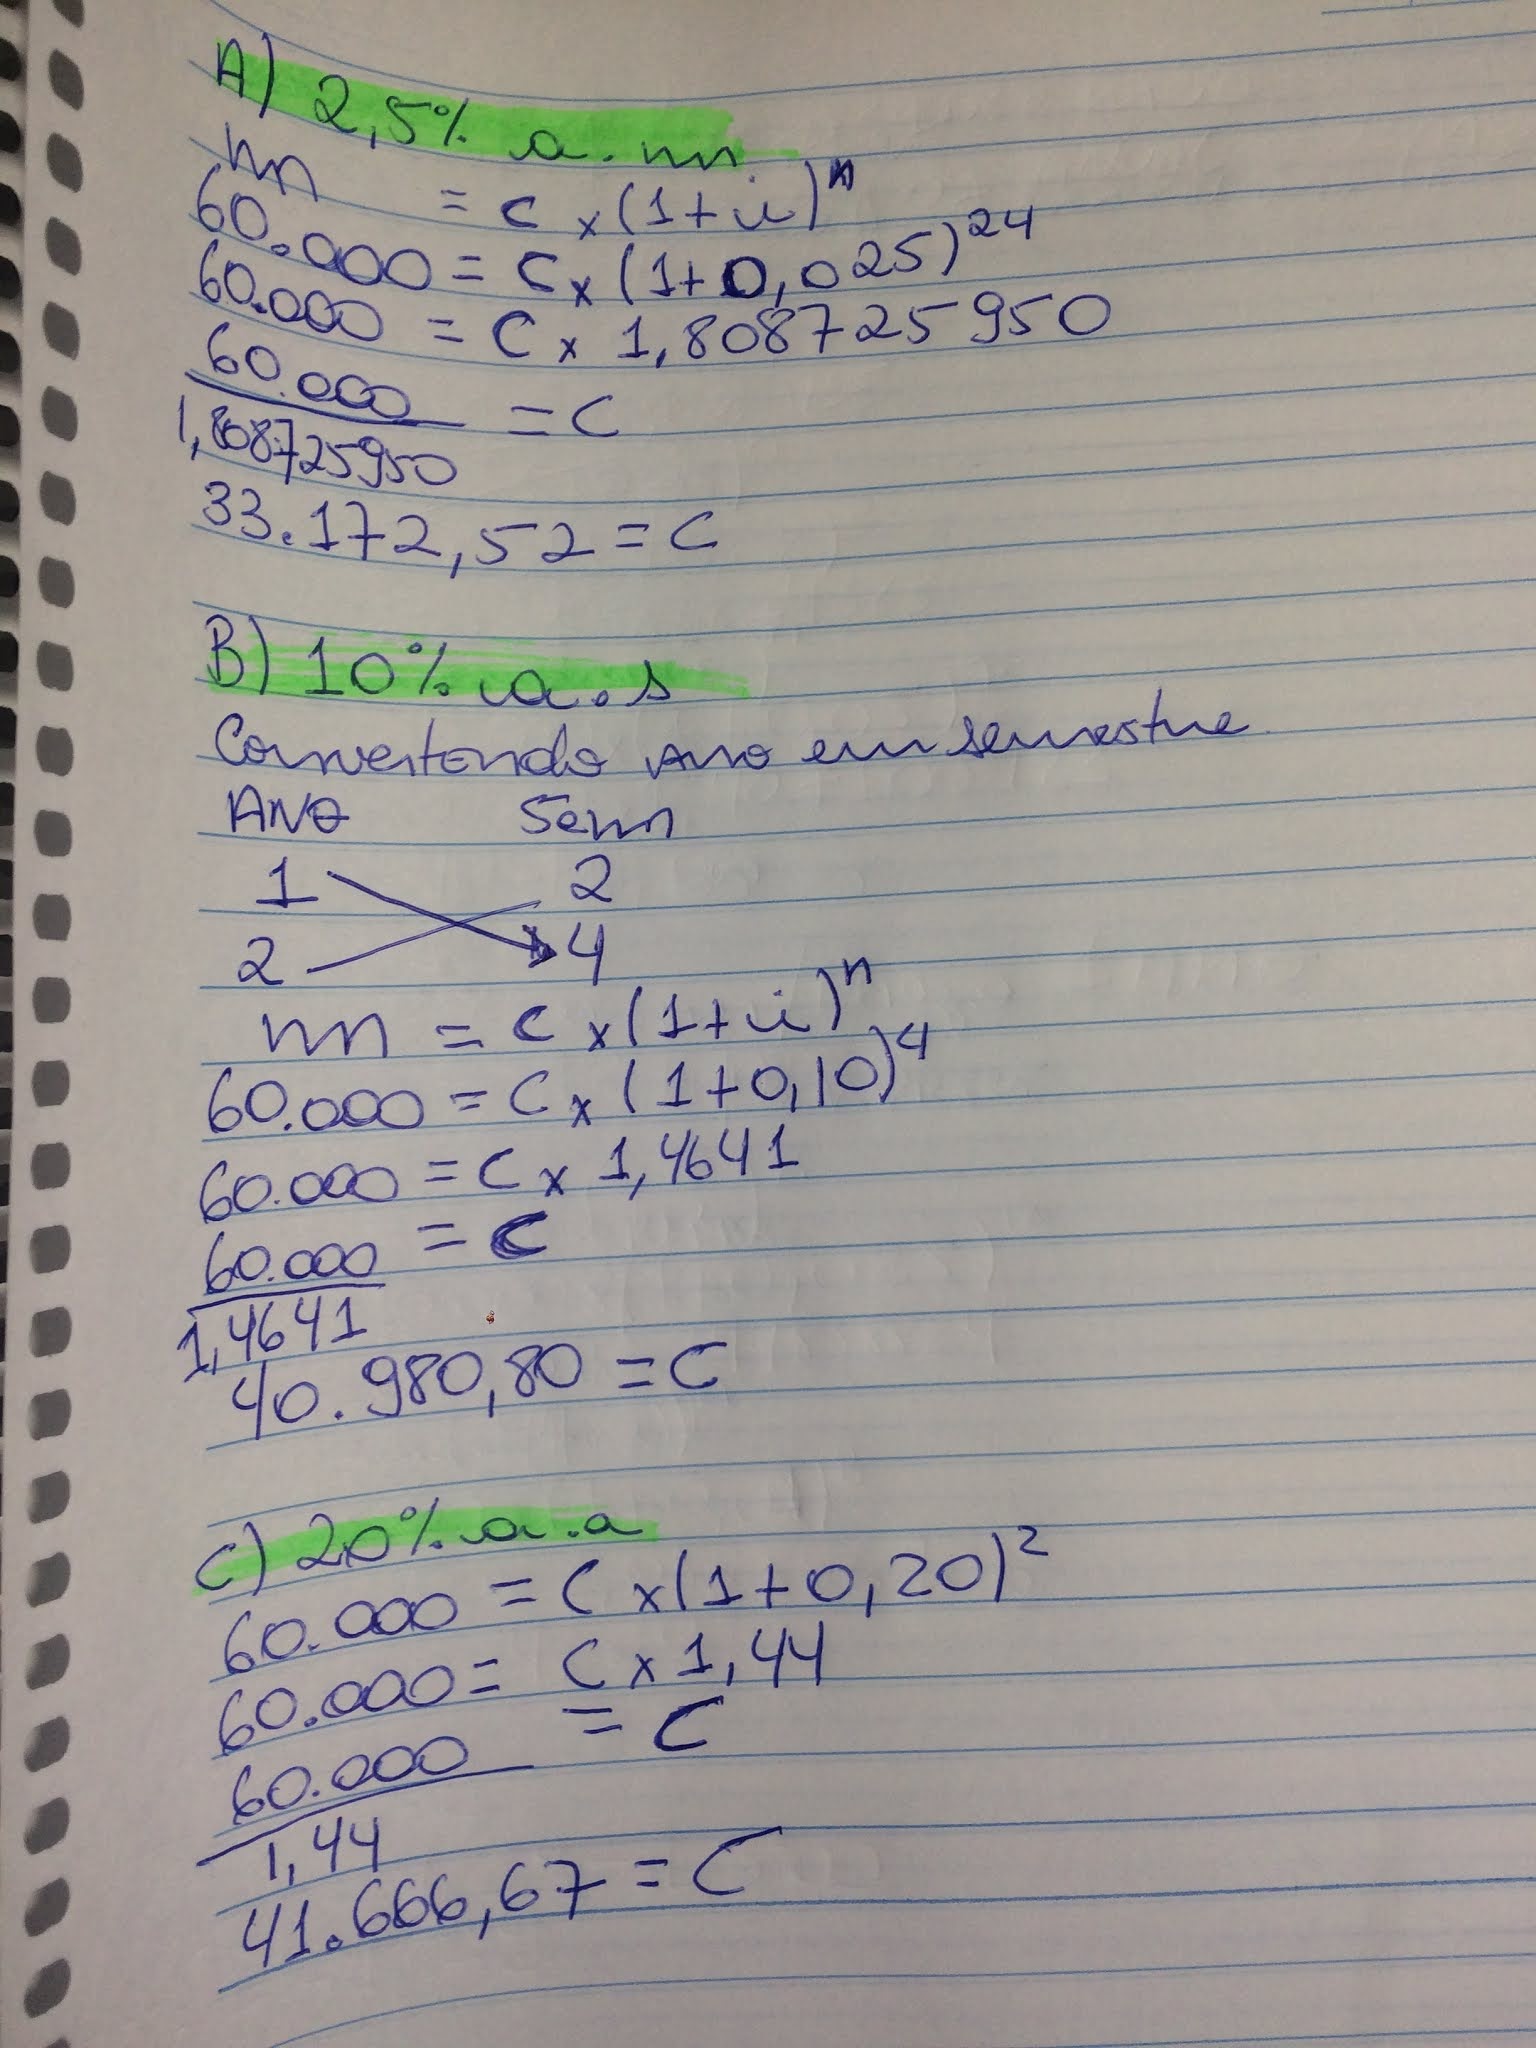 A) 2,5% a.m
m = c x (1+i)^n
60.000 = C x (1+0,025)^24
60.000 = C x 1,808725950
60.000 = C
1,808725950
33.172,52 = C
B) 10% a.s
Convertendo ano em semestre
ANO Sem
1 2
2 4
m = c x (1+i)^n
60.000 = C x (1+0,10)^4
60.000 = C x 1,4641
60.000 = C
1,4641
40.980,80 = C
C) 20% a.a
60.000 = C x (1+0,20)^2
60.000 = C x 1,44
60.000 = C
1,44
41.666,67 = C